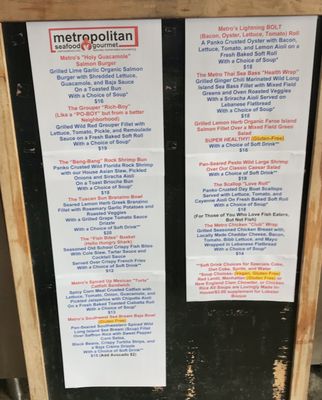 metropolitan
seafood gourmet
Metro's "Holy Guacamole"
Salmon Burger
Grilled Lime Garlic Organic Salmon
Burger with Shredded Lettuce,
Guacamole, and Baja Sauce
On a Toasted Bun
With a Choice of Soup*
$16
The Grouper "Rich-Boy"
(Like a "PO-BOY" but from a better
Neighborhood)
Grilled Wild Red Grouper Filet with
Lettuce, Tomato, Pickle, and Remoulade
Sauce on a Fresh Baked Soft Roll
With a Choice of Soup*
$19
The "Bang-Bang" Rock Shrimp Bun
Panko Crusted Wild Florida Rock Shrimp
with our House Asian Slaw, Pickled
Onions and Sriracha Aioli
On a Toast Brioche Bun
With a Choice of Soup*
$18
The Tuscan Sun Branzino Bowl
Seared Lemon Herb Greek Branzino
Fillet with Rosemary Garlic Potatoes and
Roasted Veggies
With a Grilled Grape Tomato Sauce
Drizzle
With a Choice of Soft Drink**
$20
The "Fish Bites" Basket
(Hello Hungry Shark)
Seasoned Old Salted Crispy Fish Bites
With Cole Slaw, Tartar Sauce and
Cocktail Sauce
Served Over Crispy French Fries
With a Choice of Soft Drink**
$12
Metro's Served Up Mexican "Torta"
Catfish Sandwich
Spicy Corn Meal Crusted Catfish with
Lettuce, Tomato, Onion, Guacamole, and
Pickled Jalapeños with Chipotle Aioli
On a Fresh Baked Toasted Ciabatta Roll
With a Choice of Soup*
$15
Metro's Southwest Sea Bream Baja Bowl
(Gluten Free)
Pan-Seared Southwestern Spiced Wild
Long Island Sea Bream (Scup) Filet
Over Saffron Rice with Sweet Pepper
Corn Salsa,
Black Beans, Crispy Tortilla Strips, and
a Baja Crema Drizzle
With a Choice of Soft Drink**
$15 (Add Avocado $2)
Metro's Lightning BOLT
(Bacon, Oyster, Lettuce, Tomato) Roll
A Panko Crusted Oyster with Bacon,
Lettuce, Tomato, and Lemon Aioli on a
Fresh Baked Soft Roll
With a Choice of Soup*
$18
The Metro Thai Sea Bass "Health Wrap"
Grilled Ginger Chili Marinated Wild Long
Island Sea Bass Fillet with Mixed Field
Greens and Oven Roasted Veggies
With a Sriracha Aioli Served on
Lebanese Flatbread
With a Choice of Soup*
$18
Grilled Lemon Herb Organic Faroe Island
Salmon Fillet Over a Mixed Field Green
Salad
SUPER HEALTHY! (Gluten-Free)
With a Choice of Soft Drink**
$18
Pan-Seared Pesto Wild Large Shrimp
Over Our Classic Caesar Salad
With a Choice of Soft Drink**
$19
The Scallop "Love Roll"
Panko Crusted Day Boat Scallops
Served with Lettuce, Tomato, and
Cayenne Aioli On Fresh Baked Soft Roll
With a Choice of Soup*
$18
(For Those of You Who Love Fish Eaters,
But Not Fish)
The Metro Chicken "Club" Wrap
Grilled Seasoned Chicken Breast with,
Locally Made Cheddar Cheese, Bacon,
Tomato, Bibb Lettuce, and Mayo
Wrapped In Lebanese Flatbread
With a Choice of Soup*
$14
**Soft Drink Choices for Specials: Coke,
Diet Coke, Sprite, and Water